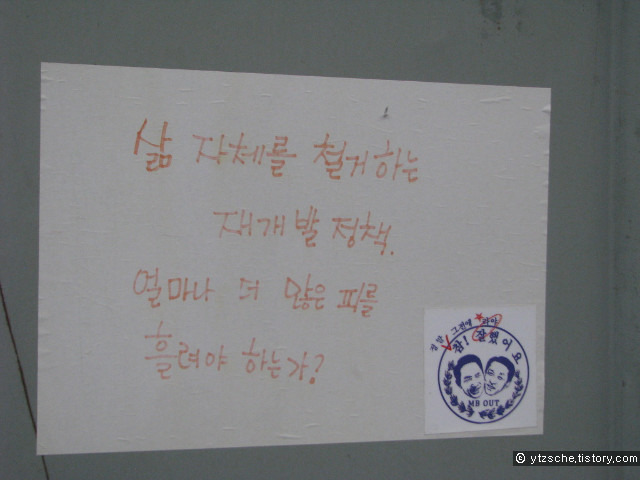 삶 자체를 철거하는
재개발 정책.
얼마나 더 많은 피를
흘려야 하는가?
참! 잘했어요
MB OUT
© ytzsche.tistory.com